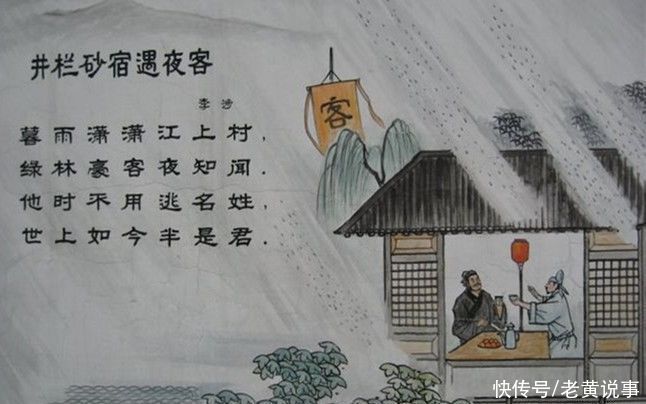 井栏砂宿遇夜客
李涉
暮雨潇潇江上村，
绿林豪客夜知闻．
他时不用逃名姓，
世上如今半是君．
客
快传号/老黄说事